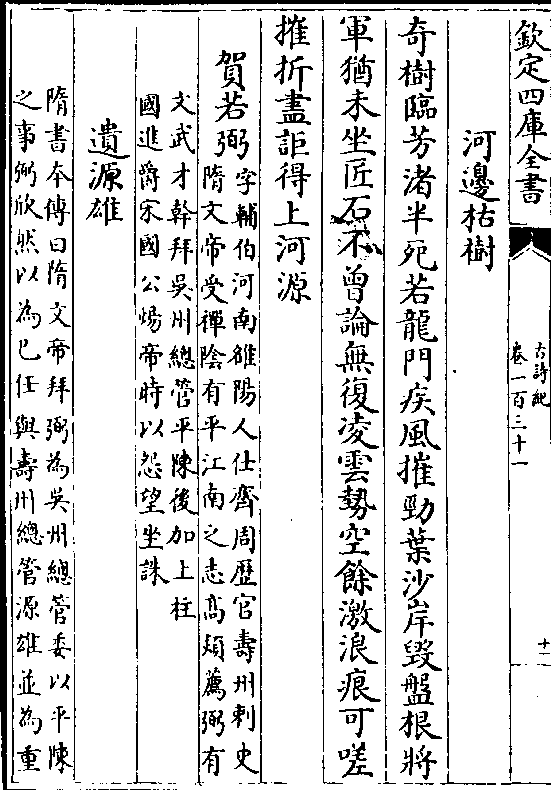 欽定四庫全書
古詩紀
卷一百三十一
十一
河邊枯樹
奇樹臨芳渚半死若龍門疾風摧勁葉沙岸毀盤根將
軍猶未坐匠石不曾論無復凌雲勢空餘激浪痕可嗟
摧折盡詎得上河源
賀若弼
字輔伯河南雒陽人仕齊周歷官壽州刺史
隋文帝受禪陰有平江南之志高熲薦弼有
文武才幹拜吳州總管平陳後加上柱
國進爵宋國公煬帝時以怨望坐誅
遺源雄
隋書本傳曰隋文帝拜弼為吳州總管委以平陳
之事弼欣然以為己任與壽州總管源雄並為重